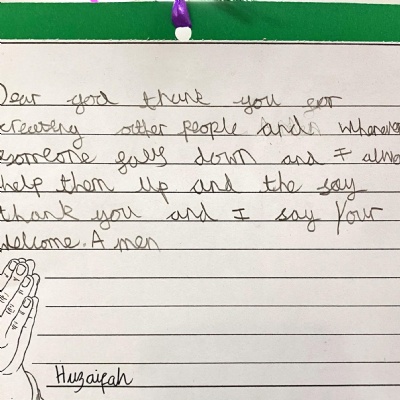 Dear god thank you for
creating other people and whenever
someone falls down and I always
help them up and the say
thank you and I say your
welcome. A men
Huzaifah